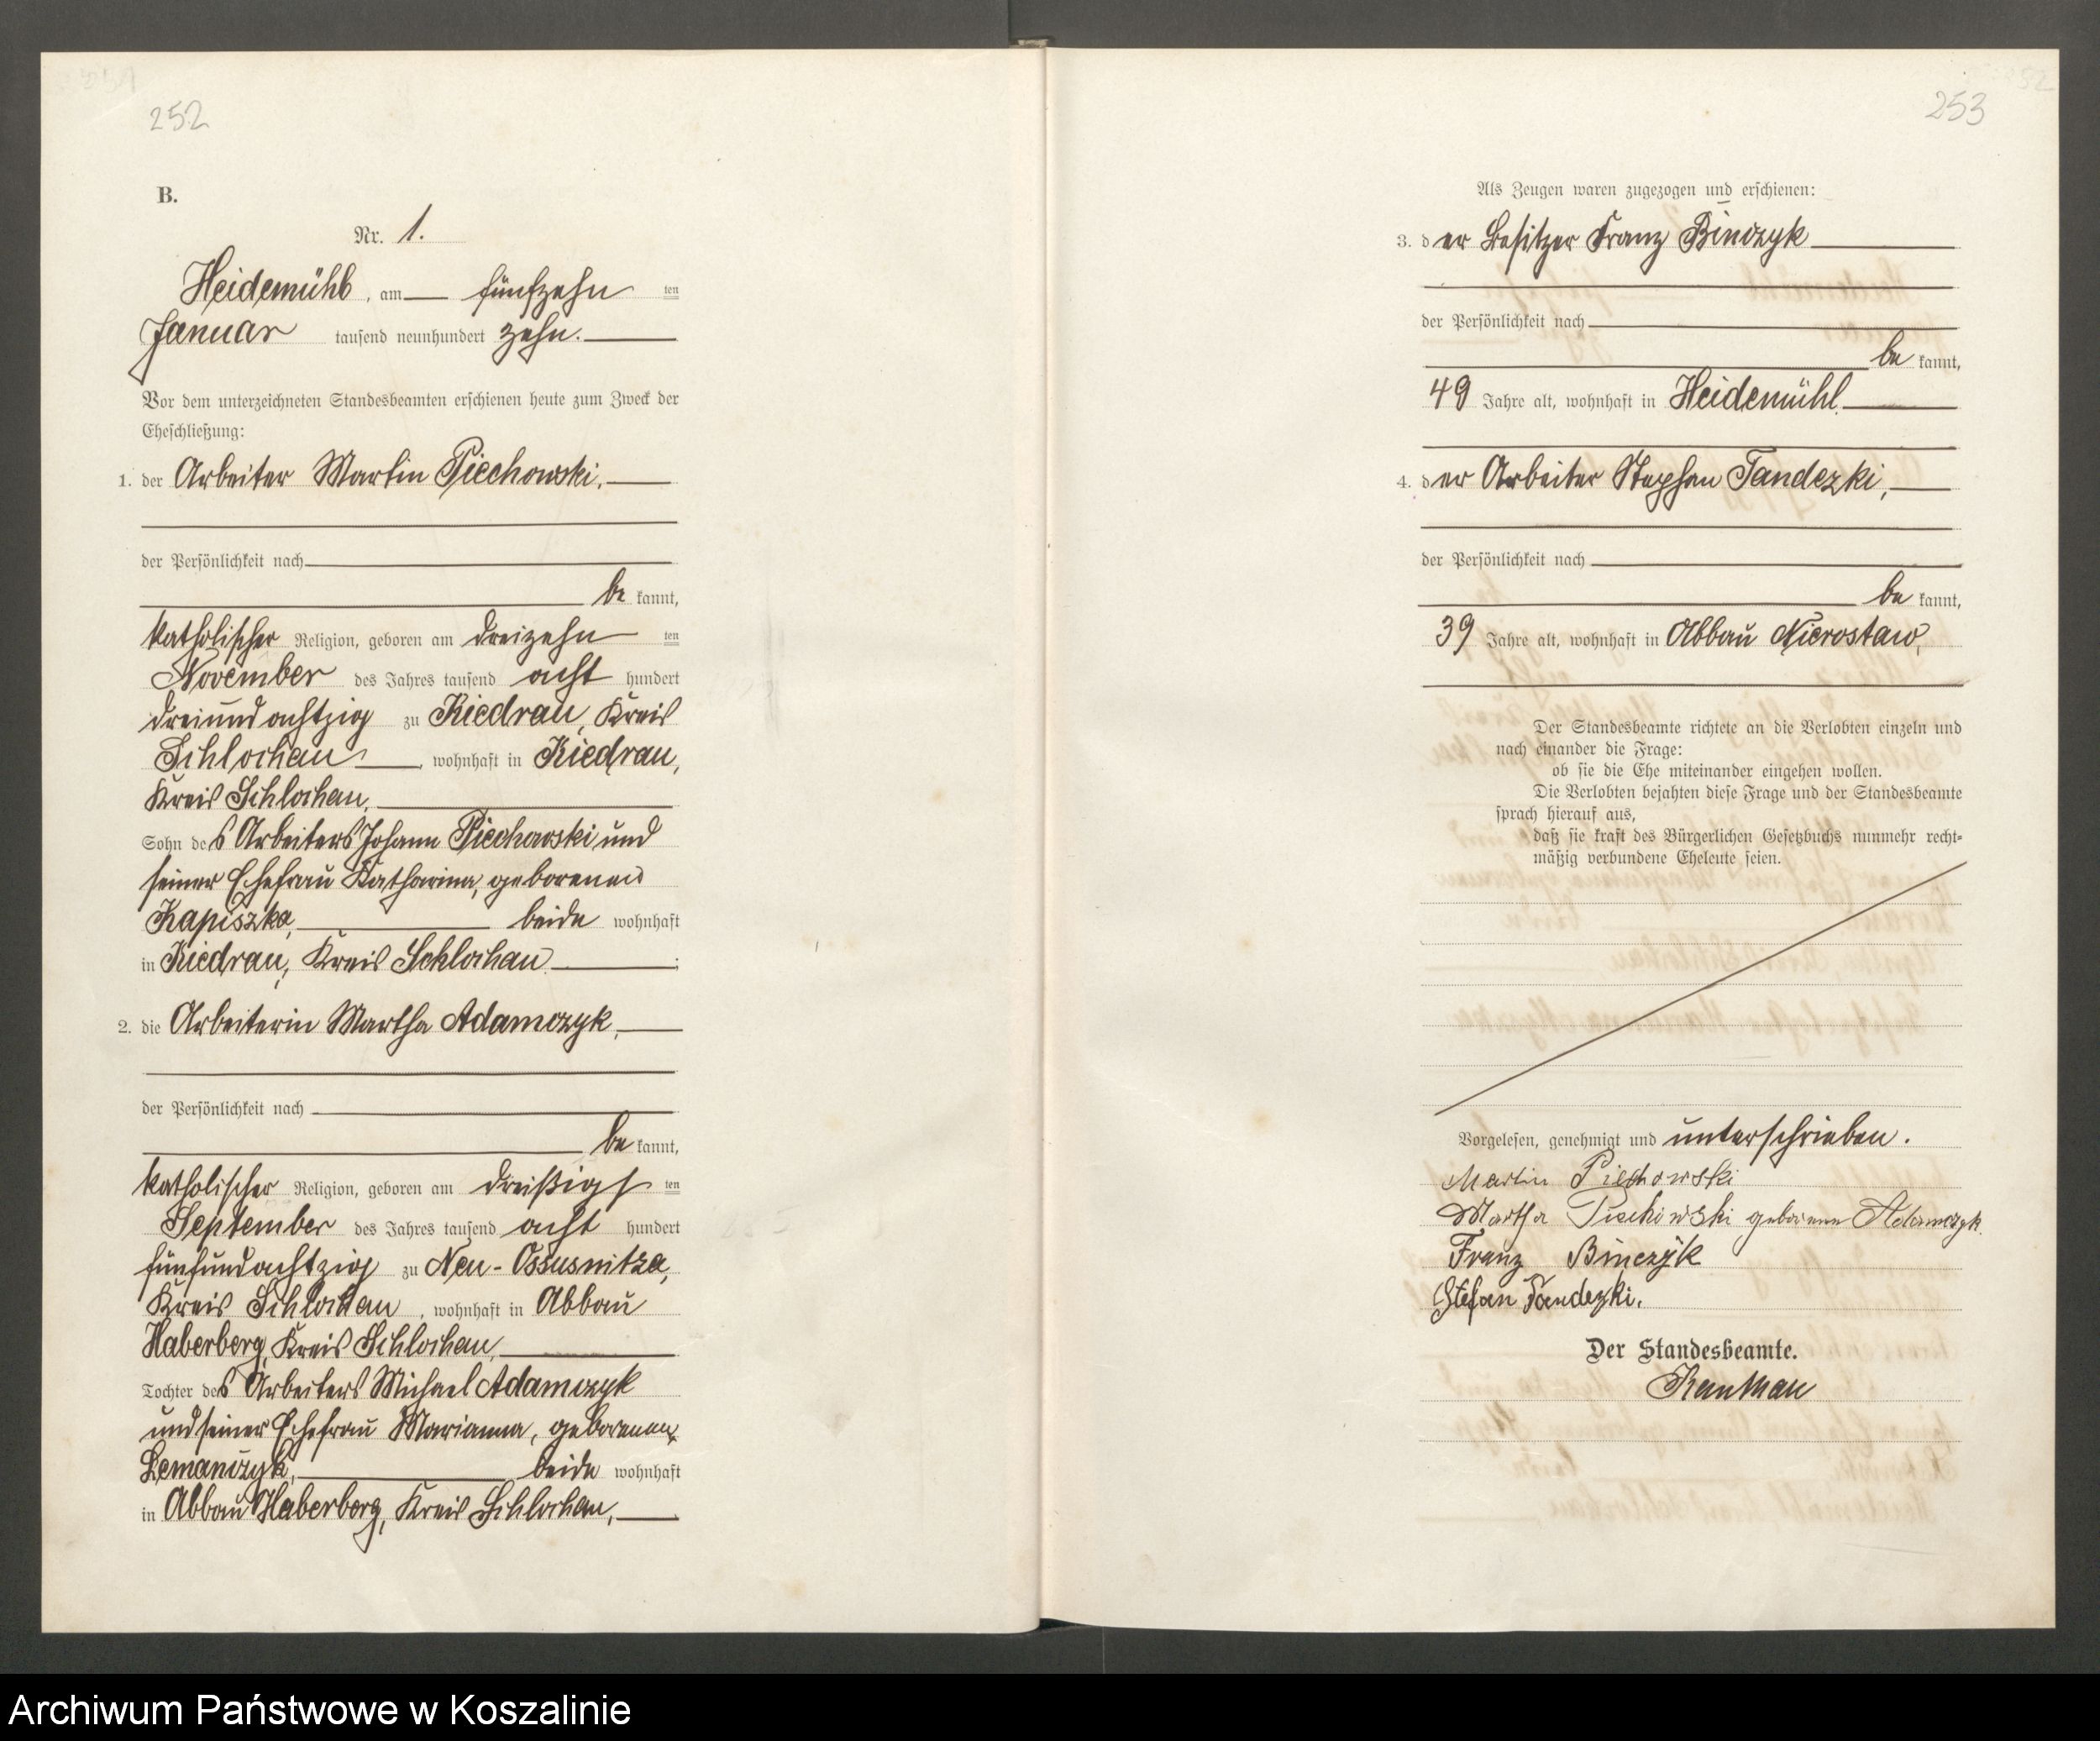 252
B.
Nr. 1.
Heidemühl, am fünfzehn ten
Januar tausend neunhundert zehn.
Vor dem unterzeichneten Standesbeamten erschienen heute zum Zweck der
Eheschließung:
1. der Arbeiter Martin Piechowski,
der Persönlichkeit nach
be kannt,
katholischer Religion, geboren am dreizehn ten
November des Jahres tausend acht hundert
dreiundachtzig zu Kiedrau, Kreis
Schlochau, wohnhaft in Kiedrau,
Kreis Schlochau,
Sohn des Arbeiters Johann Piechowski und
seiner Ehefrau Katharina, geborenen
Kapiszka, beide wohnhaft
in Kiedrau, Kreis Schlochau;
2. die Arbeiterin Martha Adamczyk,
der Persönlichkeit nach
be kannt,
katholischer Religion, geboren am dreißigs ten
September des Jahres tausend acht hundert
fünfundachtzig zu Neu-Ossusnitza,
Kreis Schlochau, wohnhaft in Abbau
Haberberg, Kreis Schlochau,
Tochter des Arbeiters Michael Adamczyk
und seiner Ehefrau Marianna, geborenen
Lemanczyk, beide wohnhaft
in Abbau Haberberg, Kreis Schlochau,
253
Als Zeugen waren zugezogen und erschienen:
3. der Besitzer Franz Binczyk
der Persönlichkeit nach
be kannt,
49 Jahre alt, wohnhaft in Heidemühl
4. der Arbeiter Stephan Tandezki,
der Persönlichkeit nach
be kannt,
39 Jahre alt, wohnhaft in Abbau Nierostaw,
Der Standesbeamte richtete an die Verlobten einzeln und
nach einander die Frage:
ob sie die Ehe miteinander eingehen wollen.
Die Verlobten bejahten diese Frage und der Standesbeamte
sprach hierauf aus,
daß sie kraft des Bürgerlichen Gesetzbuchs nunmehr recht-
mäßig verbundene Eheleute seien.
Vorgelesen, genehmigt und unterschrieben.
Martin Piechowski
Martha Piechowski geborene Adamczyk.
Franz Binczyk
Stefan Tandezki.
Der Standesbeamte.
Archiwum Państwowe w Koszalinie